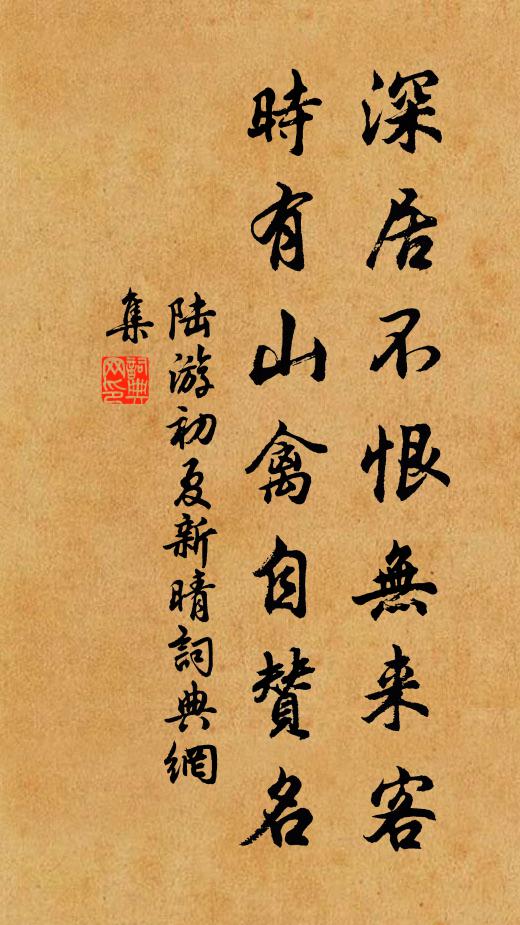 深居不恨無来客
時有山禽自贊名
陸游初夏新晴詞典網
集
詞典
网印